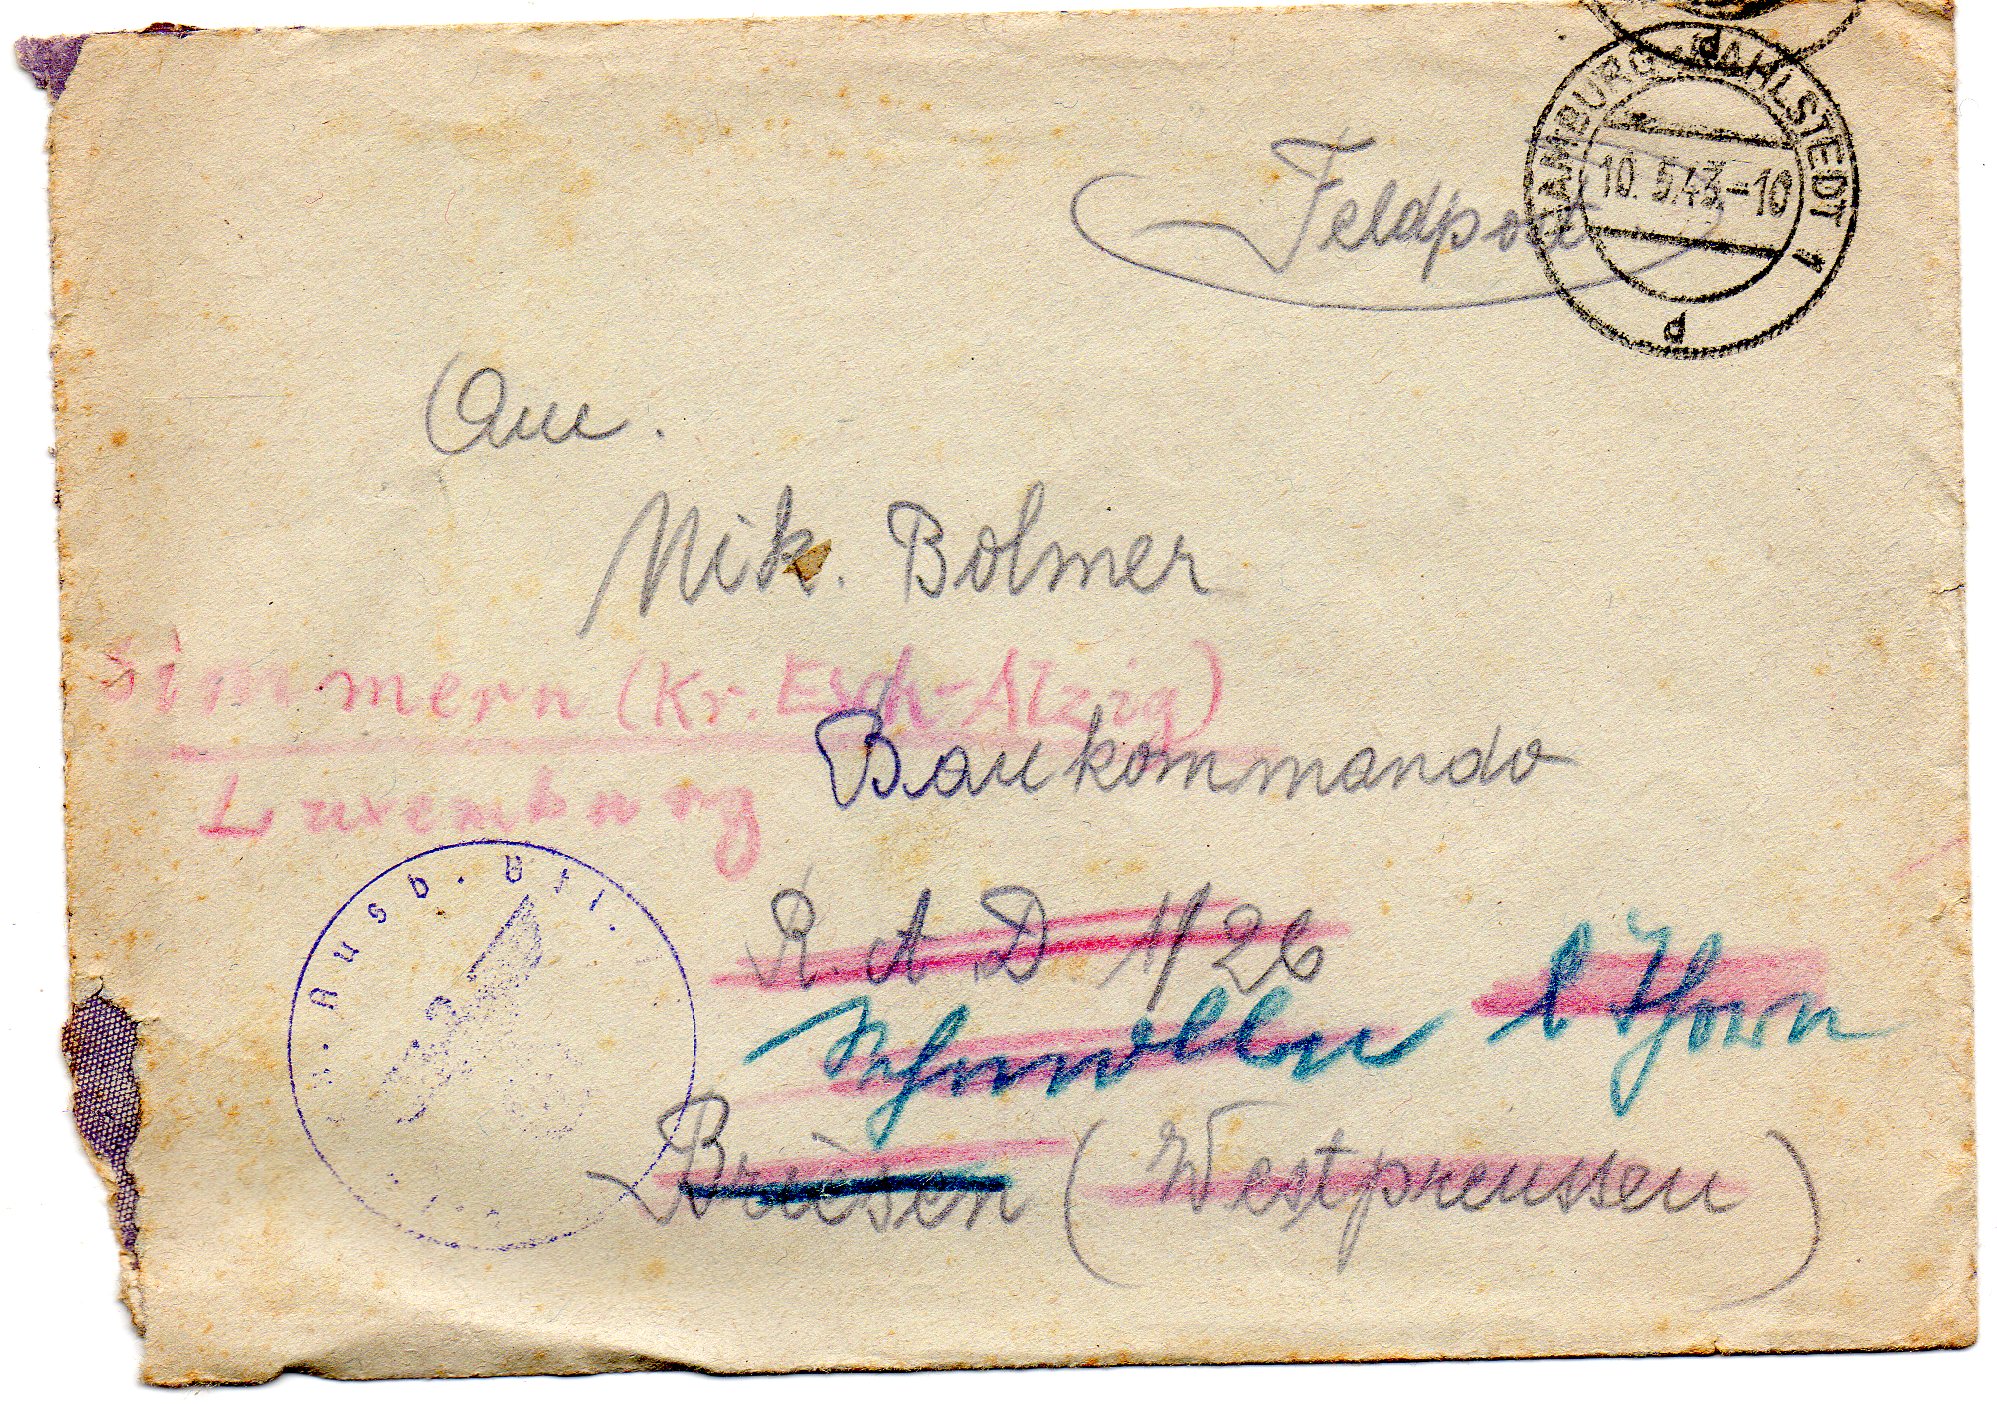 HAMBURG-RAHLSTEDT 1
10.5.43.-10
d
Feldpost
An.
Nik. Bolmer
Simmern (Kr. Esch-Alzig)
Baukommando
Luxemburg
Ausb.
R. A. D 1/26
b Thorn
Briesen (Westpreussen)